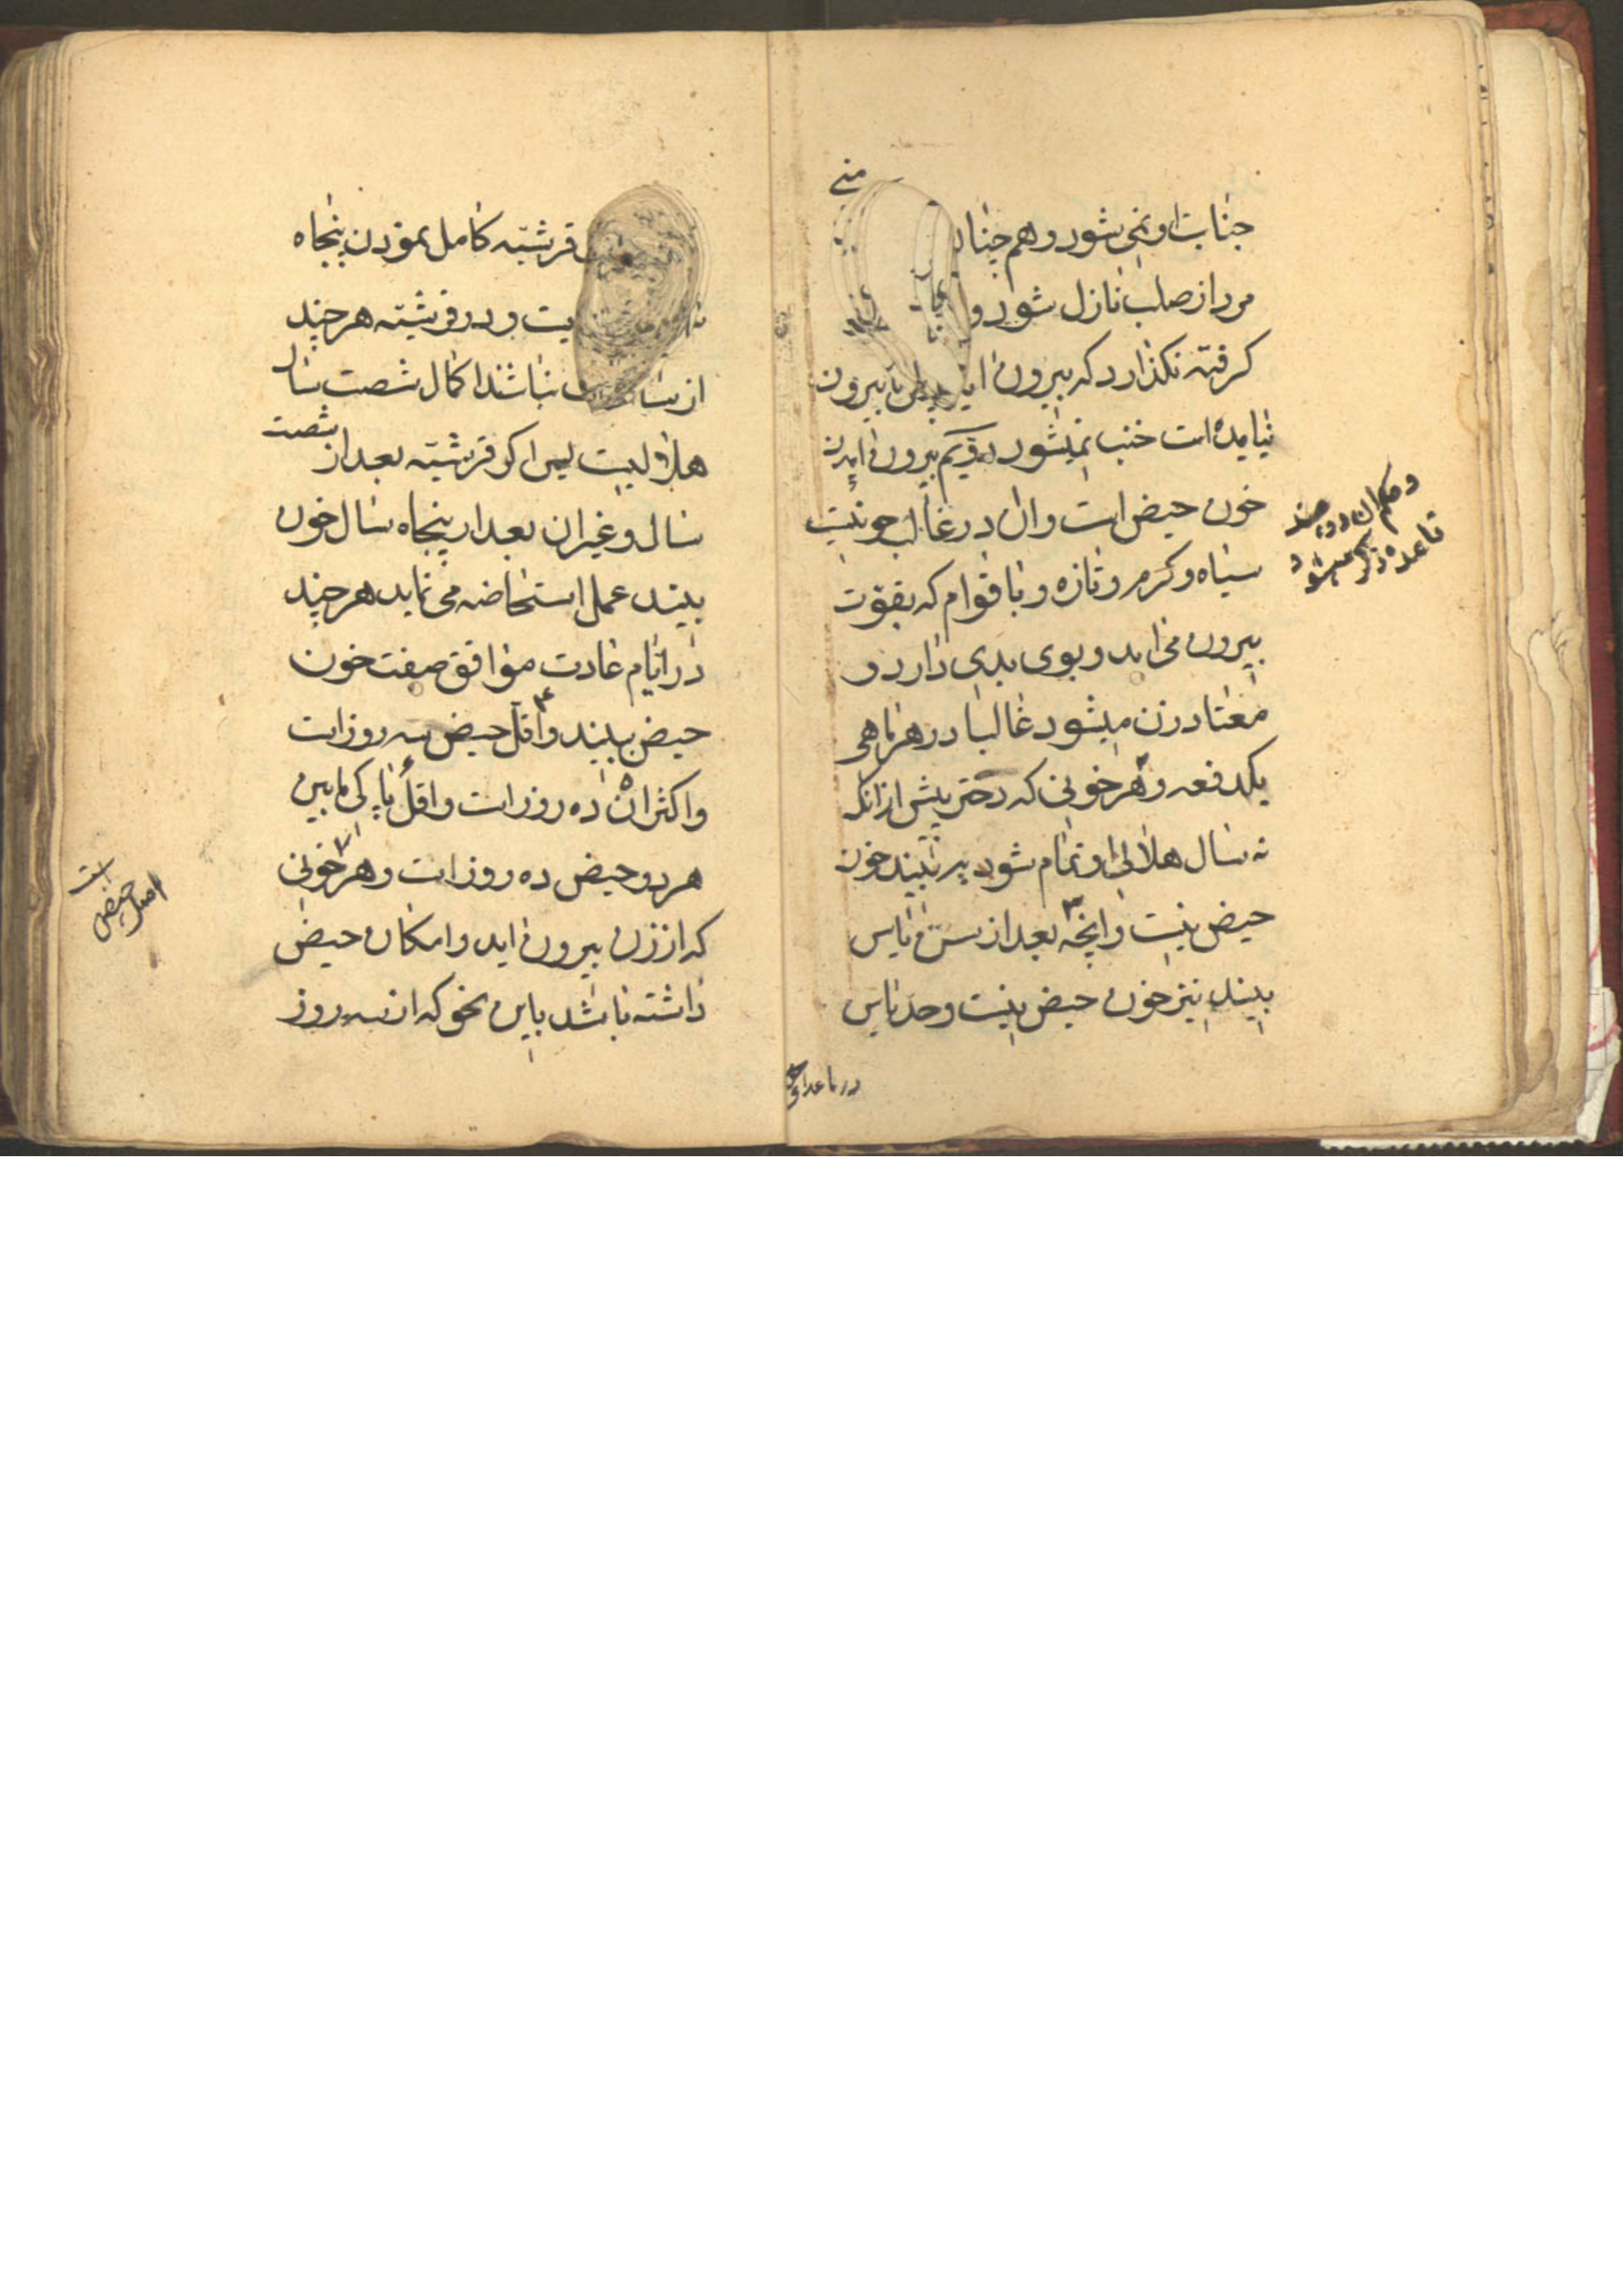 منی
جنابت او نمی شود و هم چنان
مرد از صلب نازل شود و
کرفته نکذارد که بیرون اید پس تا بیرون
نیامده است جنب نمیشود دویم بیرون امدن
خون حیض است و ان در غالب خونیست
سیاه و کرم و تازه و با قوام که بقوت
بیرون می اید و بوی بدی دارد و
معتاد زن میشود غالبا در هر ماهی
یکدفعه و هر خونی که دختر پیش از انکه
نه سال هلالی او تمام شود به بیند خون
حیض نیست و انچه بعد از سن یاس
بیند نیز خون حیض نیست و حد یاس
و حکم ان در چند
قاعده ذکر میشود
در ماعدای
قرشیه کامل نمودن پنجاه
یت و در قرشیه هر چند
از نباشند اکمال شصت سال
هلالیست پس اکر قرشیه بعد از شصت
سال و غیر ان بعد از پنجاه سال خون
بیند عمل استحاضه می نماید هر چند
در ایام عادت موافق صفت خون
حیض ببیند ۴ و اقل حیض سه روز است
و اکثر ان ۵ ده روز است و اقل پاکی مابین
هر دو حیض ده روز است و هر ۷ خونی
که از زن بیرون اید و امکان حیض
داشته باشد باین نحو که از سه روز
اصل حیض است